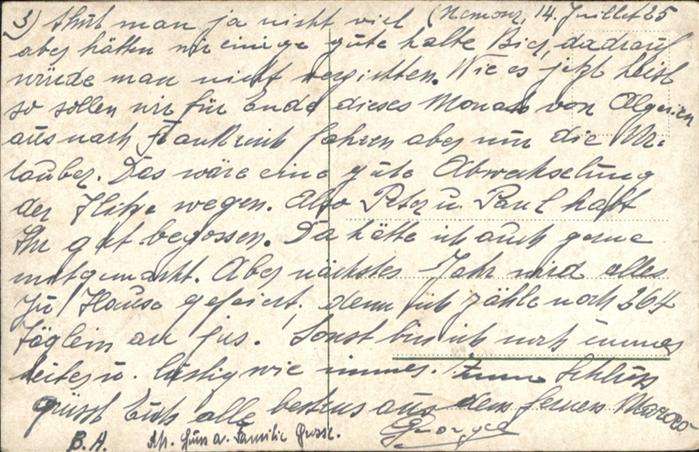 3) thut man ja nicht viel (Nemours, 14. Juillet 25
aber hätten wir einige gute kalte Bier, da drauf
würde man nicht verzichten. Wie es jetzt heist
so sollen wir für Ende dieses Monats von Algerien
aus nach Frankreich fahren aber nur die Ur-
lauber. Das wäre eine gute Abwechselung
der Hitze wegen. Also Peter u. Paul habt
Ihr gut begossen. Da hätte ich auch gerne
mitgemacht. Aber nächstes Jahr wird alles
zu Hause gefeiert, denn ich zähle noch 264
Täglein au jus. Sonst bin ich noch immer
heiter u. lustig wie immer. Zum Schluss
grüsst Euch alle bestens aus dem fernen Maroco
B. A. Gruss a. Familie
George